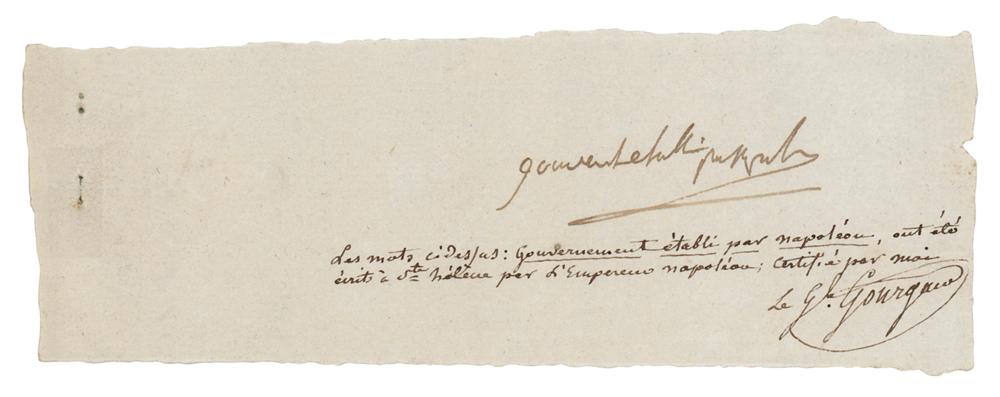 gouvent etabli par Napole
Les mots cidessus: Gouvernement établi par napoléon, ont été
écrit à Ste hélène par L'Empereur napoléon; Certifié par moi
Le Gal Gourgaud